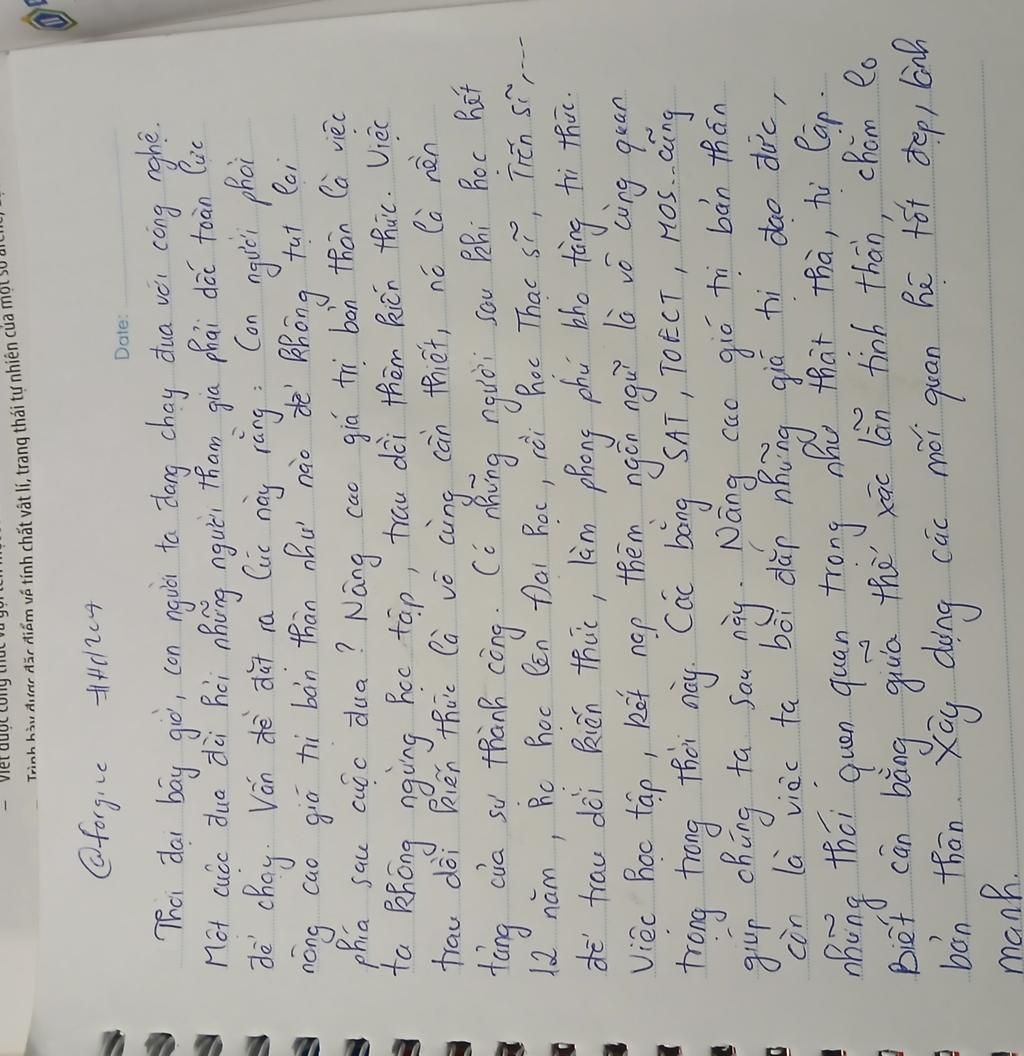 Viết được công thức và gọi tên một
Trình bày được đặc điểm về tính chất vật lí, trạng thái tự nhiên của một số
@forgive
Date:
Thời đại bây giờ, con người ta đang chạy đua với công nghệ.
Một cuộc đua đòi hỏi những người tham gia phải dốc toàn lực
để chạy. Vấn đề đặt ra lúc này rằng: Con người phải
nâng cao giá trị bản thân như nào để không tụt lại
phía sau cuộc đua? Nâng cao giá trị bản thân là việc
ta không ngừng học tập, trau dồi thêm kiến thức. Việc
trau dồi kiến thức là vô cùng cần thiết, nó là nền
tảng của sự thành công. Có những người sau khi học hết
12 năm, họ học lên Đại học, rồi học Thạc sĩ, Tiến sĩ,...
để trau dồi kiến thức, làm phong phú kho tàng tri thức.
Việc học tập, kết nạp thêm ngôn ngữ là vô cùng quan
trọng trong thời này. Các bằng SAT, TOECT, MOS...cũng
giúp chúng ta sau này. Nâng cao giá trị bản thân
còn là việc ta bồi đắp những giá trị đạo đức,
những thói quen quan trọng như thật thà, tự lập.
Biết cân bằng giữa thể xác lẫn tinh thần, chăm lo
bản thân. Xây dựng các mối quan hệ tốt đẹp, lành
mạnh.